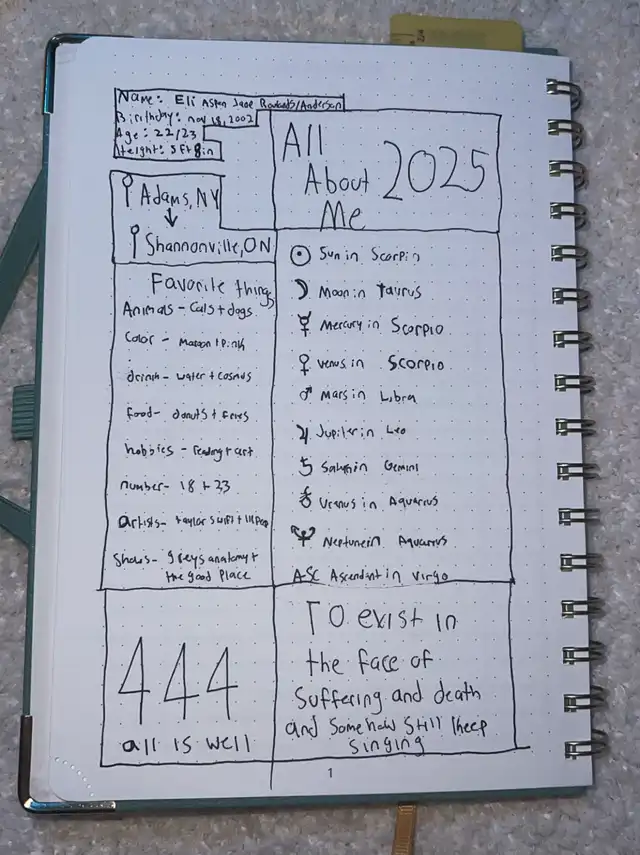 Name: Eli Aspen Jane Rowlands/Anderson
Birthday: nov 18, 2002
Age: 22/23
Height: 5ft 8in
All
About
Me
2025
Adams, NY
Shannonville, ON
Favorite things
Animals - Cats + dogs
Color - Maroon + Pink
drink - water + cosmos
food - donuts + fries
hobbies - reading + art
number - 18 + 23
artists - taylor swift + lil peep
Shows - greys anatomy +
the good Place
Sun in Scorpio
Moon in Taurus
Mercury in Scorpio
Venus in Scorpio
Mars in Libra
Jupiter in Leo
Saturn in Gemini
Uranus in Aquarius
Neptune in Aquarius
ASC Ascendant in Virgo
444
all is well
To exist in
the face of
Suffering and death
and somehow still keep
singing
1